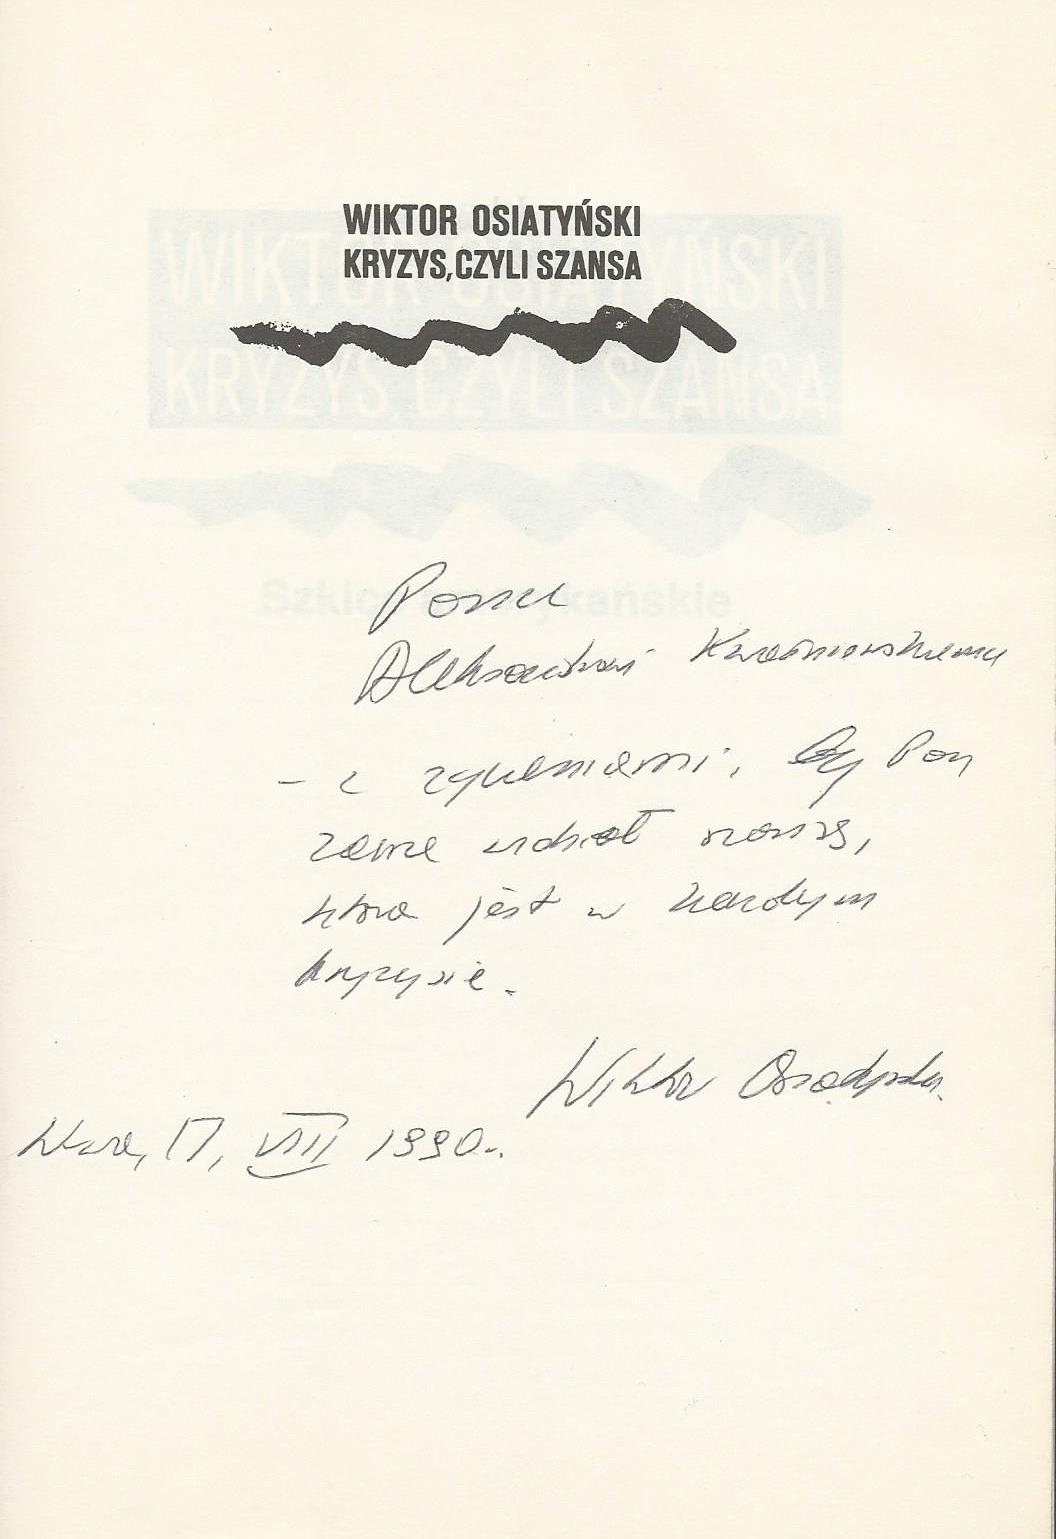 WIKTOR OSIATYŃSKI
KRYZYS, CZYLI SZANSA
WIKTOR OSIATYŃSKI
KRYZYS, CZYLI SZANSA
Szkice amerykańskie
Panu
Aleksandrowi Kwaśniewskiemu
– z życzeniami, by Pan
zawsze widział szansę,
która jest w każdym
kryzysie.
Wiktor Osiatyński
W-wa, 17, VIII 1990.